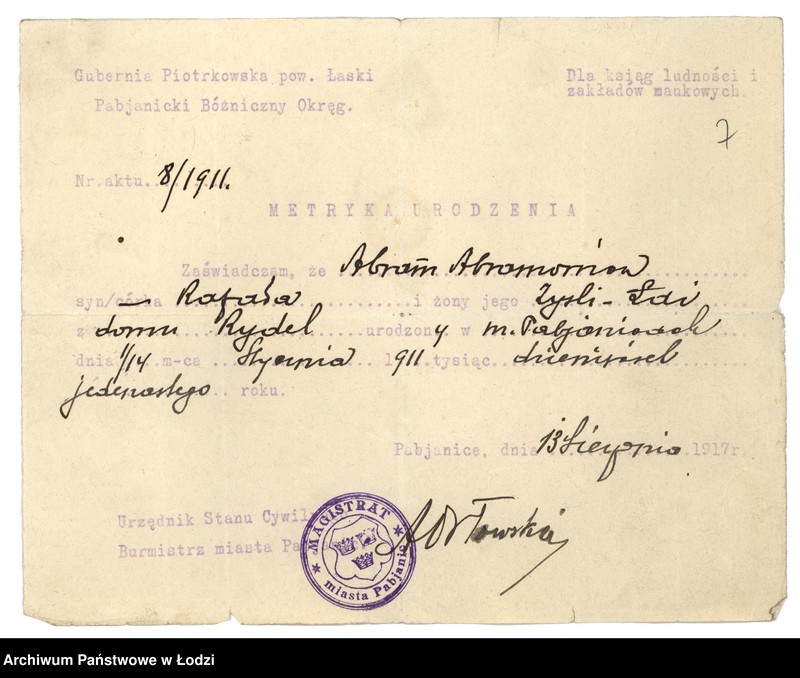 Gubernia Piotrkowska pow. Łaski
Pabjanicki Bóżniczny Okręg.
Dla ksiąg ludności i
zakładów naukowych.
7
Nr.aktu 8/1911.
METRYKA URODZENIA
Zaświadczam, że Abram Abramowicz
syn/córka — Rafała i żony jego Zysli-Łai
z domu Rydel urodzony w m. Pabjanicach
dnia 1/14 m-ca Stycznia 1911 tysiąc dziewięćset
jedenastego roku.
Pabjanice, dnia 13 Sierpnia 1917r.
Urzędnik Stanu Cywil
Burmistrz miasta Pa
MAGISTRAT
miasta Pabjanic